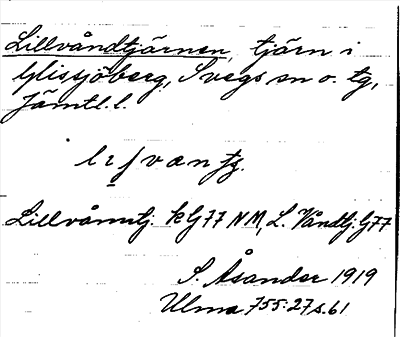 Lillvåndtjärnen, tjärn i
Glissjöberg, Svegs sn o. tg,
Jämtl. l.
Lillvåmtj. k G 77 NM, L. Våndtj. G 77
S. Åsander 1919
Ulma 755:27 s. 61